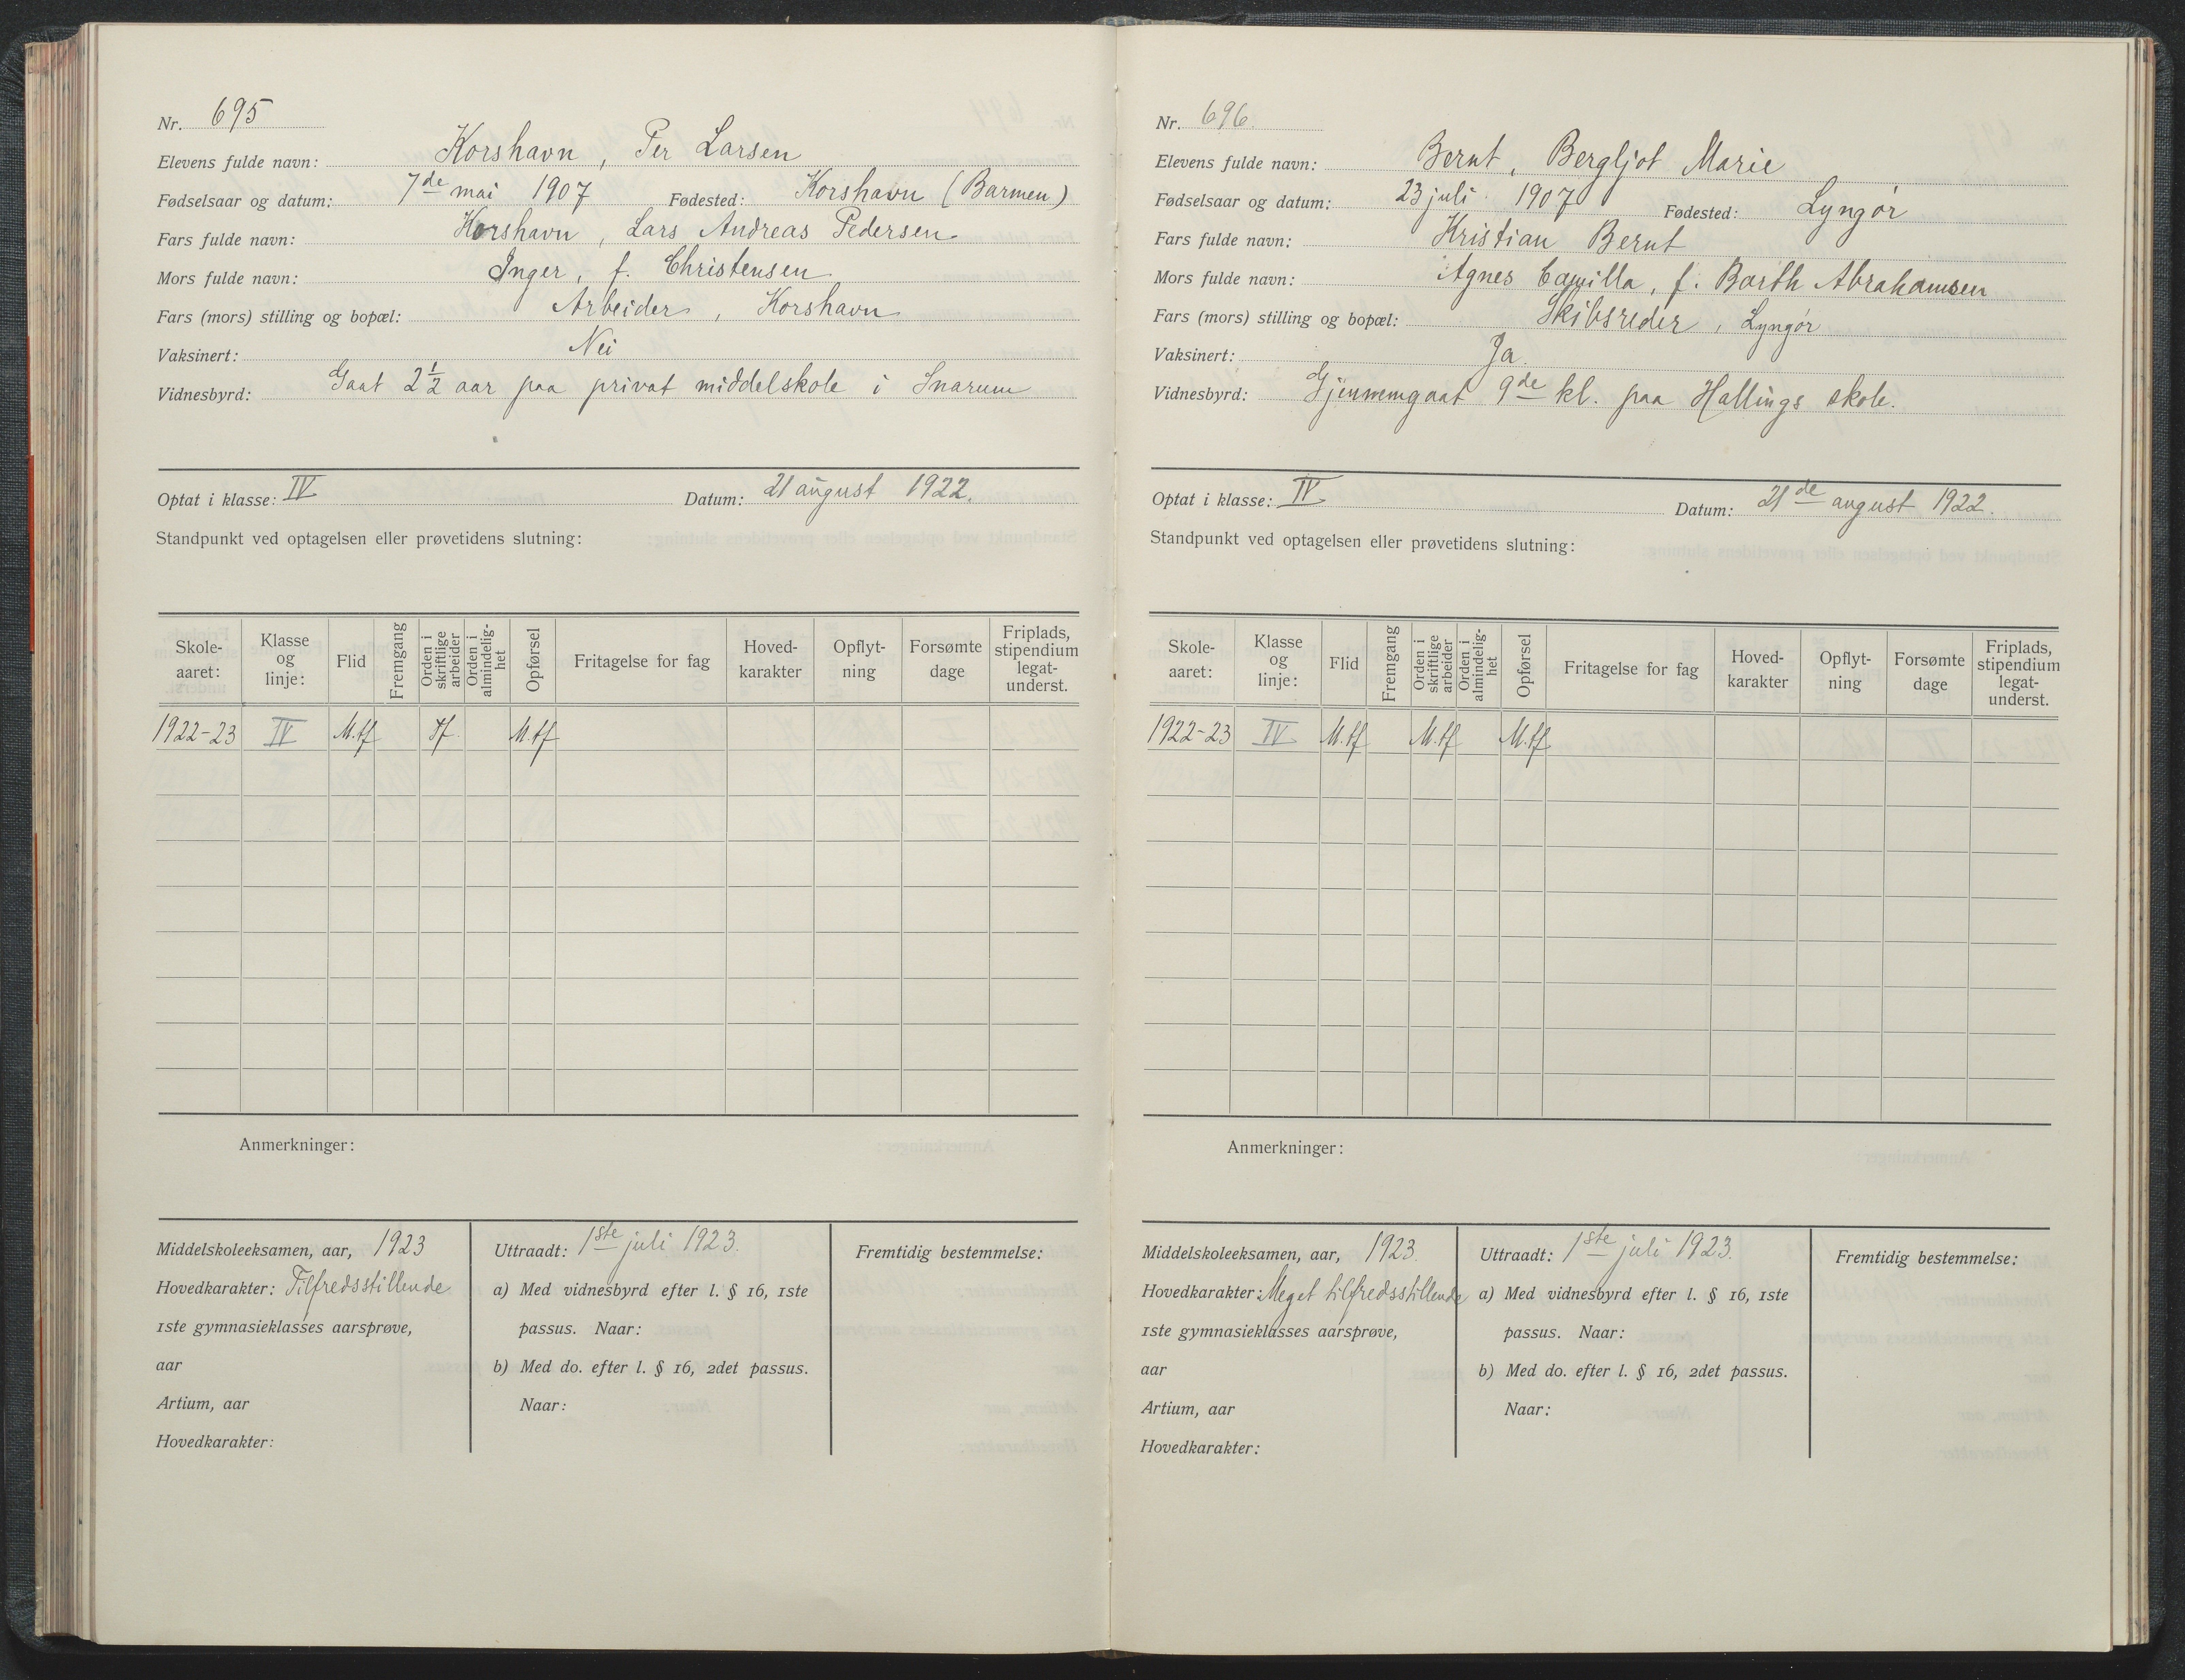 Nr. 695
Elevens fulde navn: Korshavn, Per Larsen
Fødselsaar og datum: 7de mai 1907 Fødested: Korshavn (Barmen)
Fars fulde navn: Korshavn, Lars Andreas Pedersen
Mors fulde navn: Inger, f. Christensen
Fars (mors) stilling og bopæl: Arbeider, Korshavn
Vaksinert: Nei
Vidnesbyrd: Gaat 2 1/2 aar paa privat middelskole i Snarum
Optat i klasse: IV Datum: 21 august 1922.
Standpunkt ved optagelsen eller prøvetidens slutning:
Skole-aaret: Klasse og linje: Flid Fremgang Orden i skriftlige arbeider Orden i almindelig-het Opførsel Fritagelse for fag Hoved-karakter Opflyt-ning Forsømte dage Friplads, stipendium legat-underst.
1922-23 IV M.tf Tf. M.tf
Anmerkninger:
Middelskoleeksamen, aar, 1923
Hovedkarakter: Tilfredsstillende
1ste gymnasieklasses aarsprøve,
aar
Artium, aar
Hovedkarakter:
Uttraadt: 1ste juli 1923.
a) Med vidnesbyrd efter l. § 16, 1ste
passus. Naar:
b) Med do. efter l. § 16, 2det passus.
Naar:
Fremtidig bestemmelse:
Nr. 696.
Elevens fulde navn: Bernt, Bergljot Marie
Fødselsaar og datum: 23 juli 1907 Fødested: Lyngør
Fars fulde navn: Kristian Bernt
Mors fulde navn: Agnes Camilla, f. Barth Abrahamsen
Fars (mors) stilling og bopæl: Skibsreder, Lyngør
Vaksinert: Ja.
Vidnesbyrd: Gjennemgaat 9de kl. paa Hallings skole.
Optat i klasse: IV Datum: 21de august 1922.
Standpunkt ved optagelsen eller prøvetidens slutning:
Skole-aaret: Klasse og linje: Flid Fremgang Orden i skriftlige arbeider Orden i almindelig-het Opførsel Fritagelse for fag Hoved-karakter Opflyt-ning Forsømte dage Friplads, stipendium legat-underst.
1922-23 IV M.tf M.tf M.tf
Anmerkninger:
Middelskoleeksamen, aar, 1923.
Hovedkarakter: Meget tilfredsstillende
1ste gymnasieklasses aarsprøve,
aar
Artium, aar
Hovedkarakter:
Uttraadt: 1ste juli 1923.
a) Med vidnesbyrd efter l. § 16, 1ste
passus. Naar:
b) Med do. efter l. § 16, 2det passus.
Naar:
Fremtidig bestemmelse: